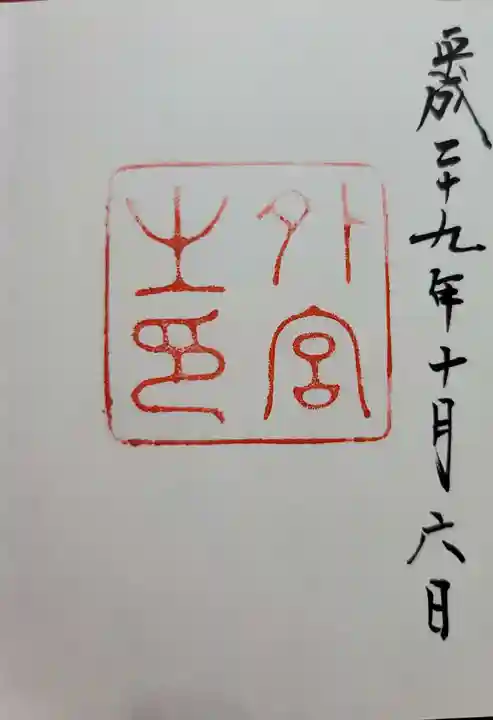 平成二十九年十月六日
外宮
之印